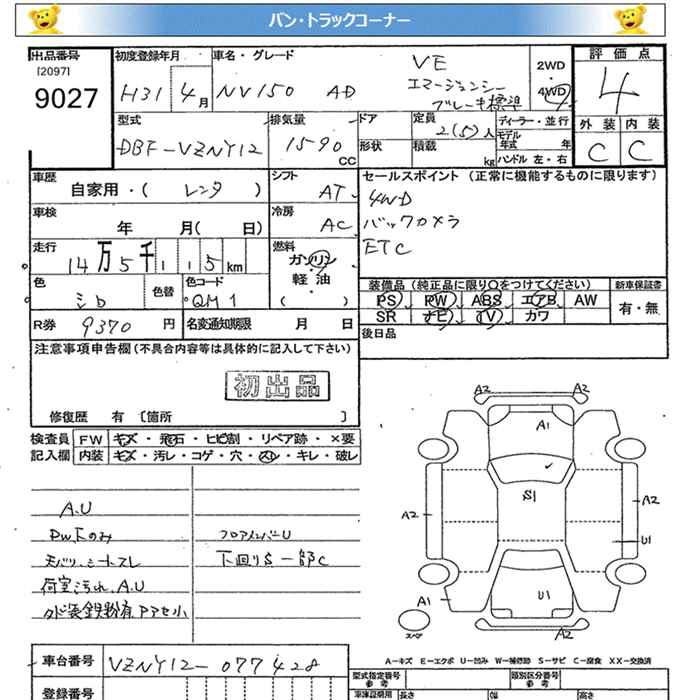 バン・トラックコーナー
出品番号
[2097]
9027
初度登録年月
H31 4月
車名・グレード
NV150 AD
VE
エマージョンシー
ブレーキ標準
2WD
4WD
評価点
4
外装 内装
C C
型式
DBF-VZNY12
排気量
1590
CC
ドア
形状
定員
2(5)人
積載
kg
ディーラー・並行
モデル
年式 年
ハンドル 左・右
車歴
自家用・( レンタ )
シフト
AT
車検
年 月( 日)
冷房
AC
走行
14万5千115km
燃料
ガソリン
軽油
( )
色
シロ
色替
色コード
QM1
R券
9370 円
名変通知期限 月 日
セールスポイント (正常に機能するものに限ります)
4WD
バックカメラ
ETC
装備品 (純正品に限り○をつけてください)
PS PW ABS エアB AW
SR ナビ TV カワ
新車保証書
有・無
後日品
注意事項申告欄(不具合内容等は具体的に記入して下さい)
初出品
修復歴 有 [箇所 ]
検査員
記入欄
FW キズ・飛石・ヒビ割・リペア跡・×要
内装 キズ・汚レ・コゲ・穴・スレ・キレ・破レ
A.U
PW.Fのみ
天バリ.シートスレ
荷室汚れ.A.U
外装鉄粉有.アアセ小
フロアメンバーU
下回りS一部C
A2 A2
A1
S1
A2 A2
U1
A1
U1
スペア
A2
A-キズ E-エクボ U-凹み W-補修跡 S-サビ C-腐食 XX-交換済
車台番号
VZNY12-077428
登録番号
型式指定番号
参考
類別区分番号
参考
車庫証明用
長さ
幅
高さ